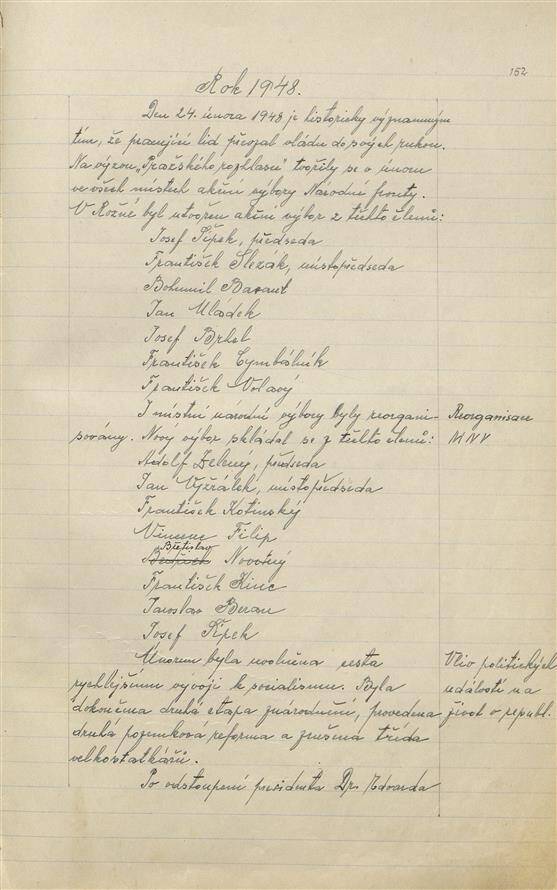 152
Rok 1948.
Den 24. února 1948 je historicky významným
tím, že pracující lid převzal vládu do svých rukou.
Na výzvu „Pražského rozhlasu" tvořily se v únoru
ve všech místech akční výbory Národní fronty.
V Rožné byl utvořen akční výbor z těchto členů:
Josef Šípek, předseda
František Slezák, místopředseda
Bohumil Bazant
Jan Mládek
Josef Brhel
František Cymbálník
František Volavý
I místní národní výbory byly reorgani-
sovány. Nový výbor skládal se z těchto členů:
Reorganisace
MNV
Adolf Zelený, předseda
Jan Vyžrálek, místopředseda
František Kotinský
Vincenc Filip
Břetislav
Novotný
František Hinc
Jaroslav Beran
Josef Šípek
Únorem byla uvolněna cesta
rychlejšímu vývoji k socialismu. Byla
dokončena druhá etapa znárodnění, provedena
druhá pozemková reforma a zrušena třída
velkostatkářů.
Vliv politických
událostí na
život v republ.
Po odstoupení presidenta Dr. Edvarda